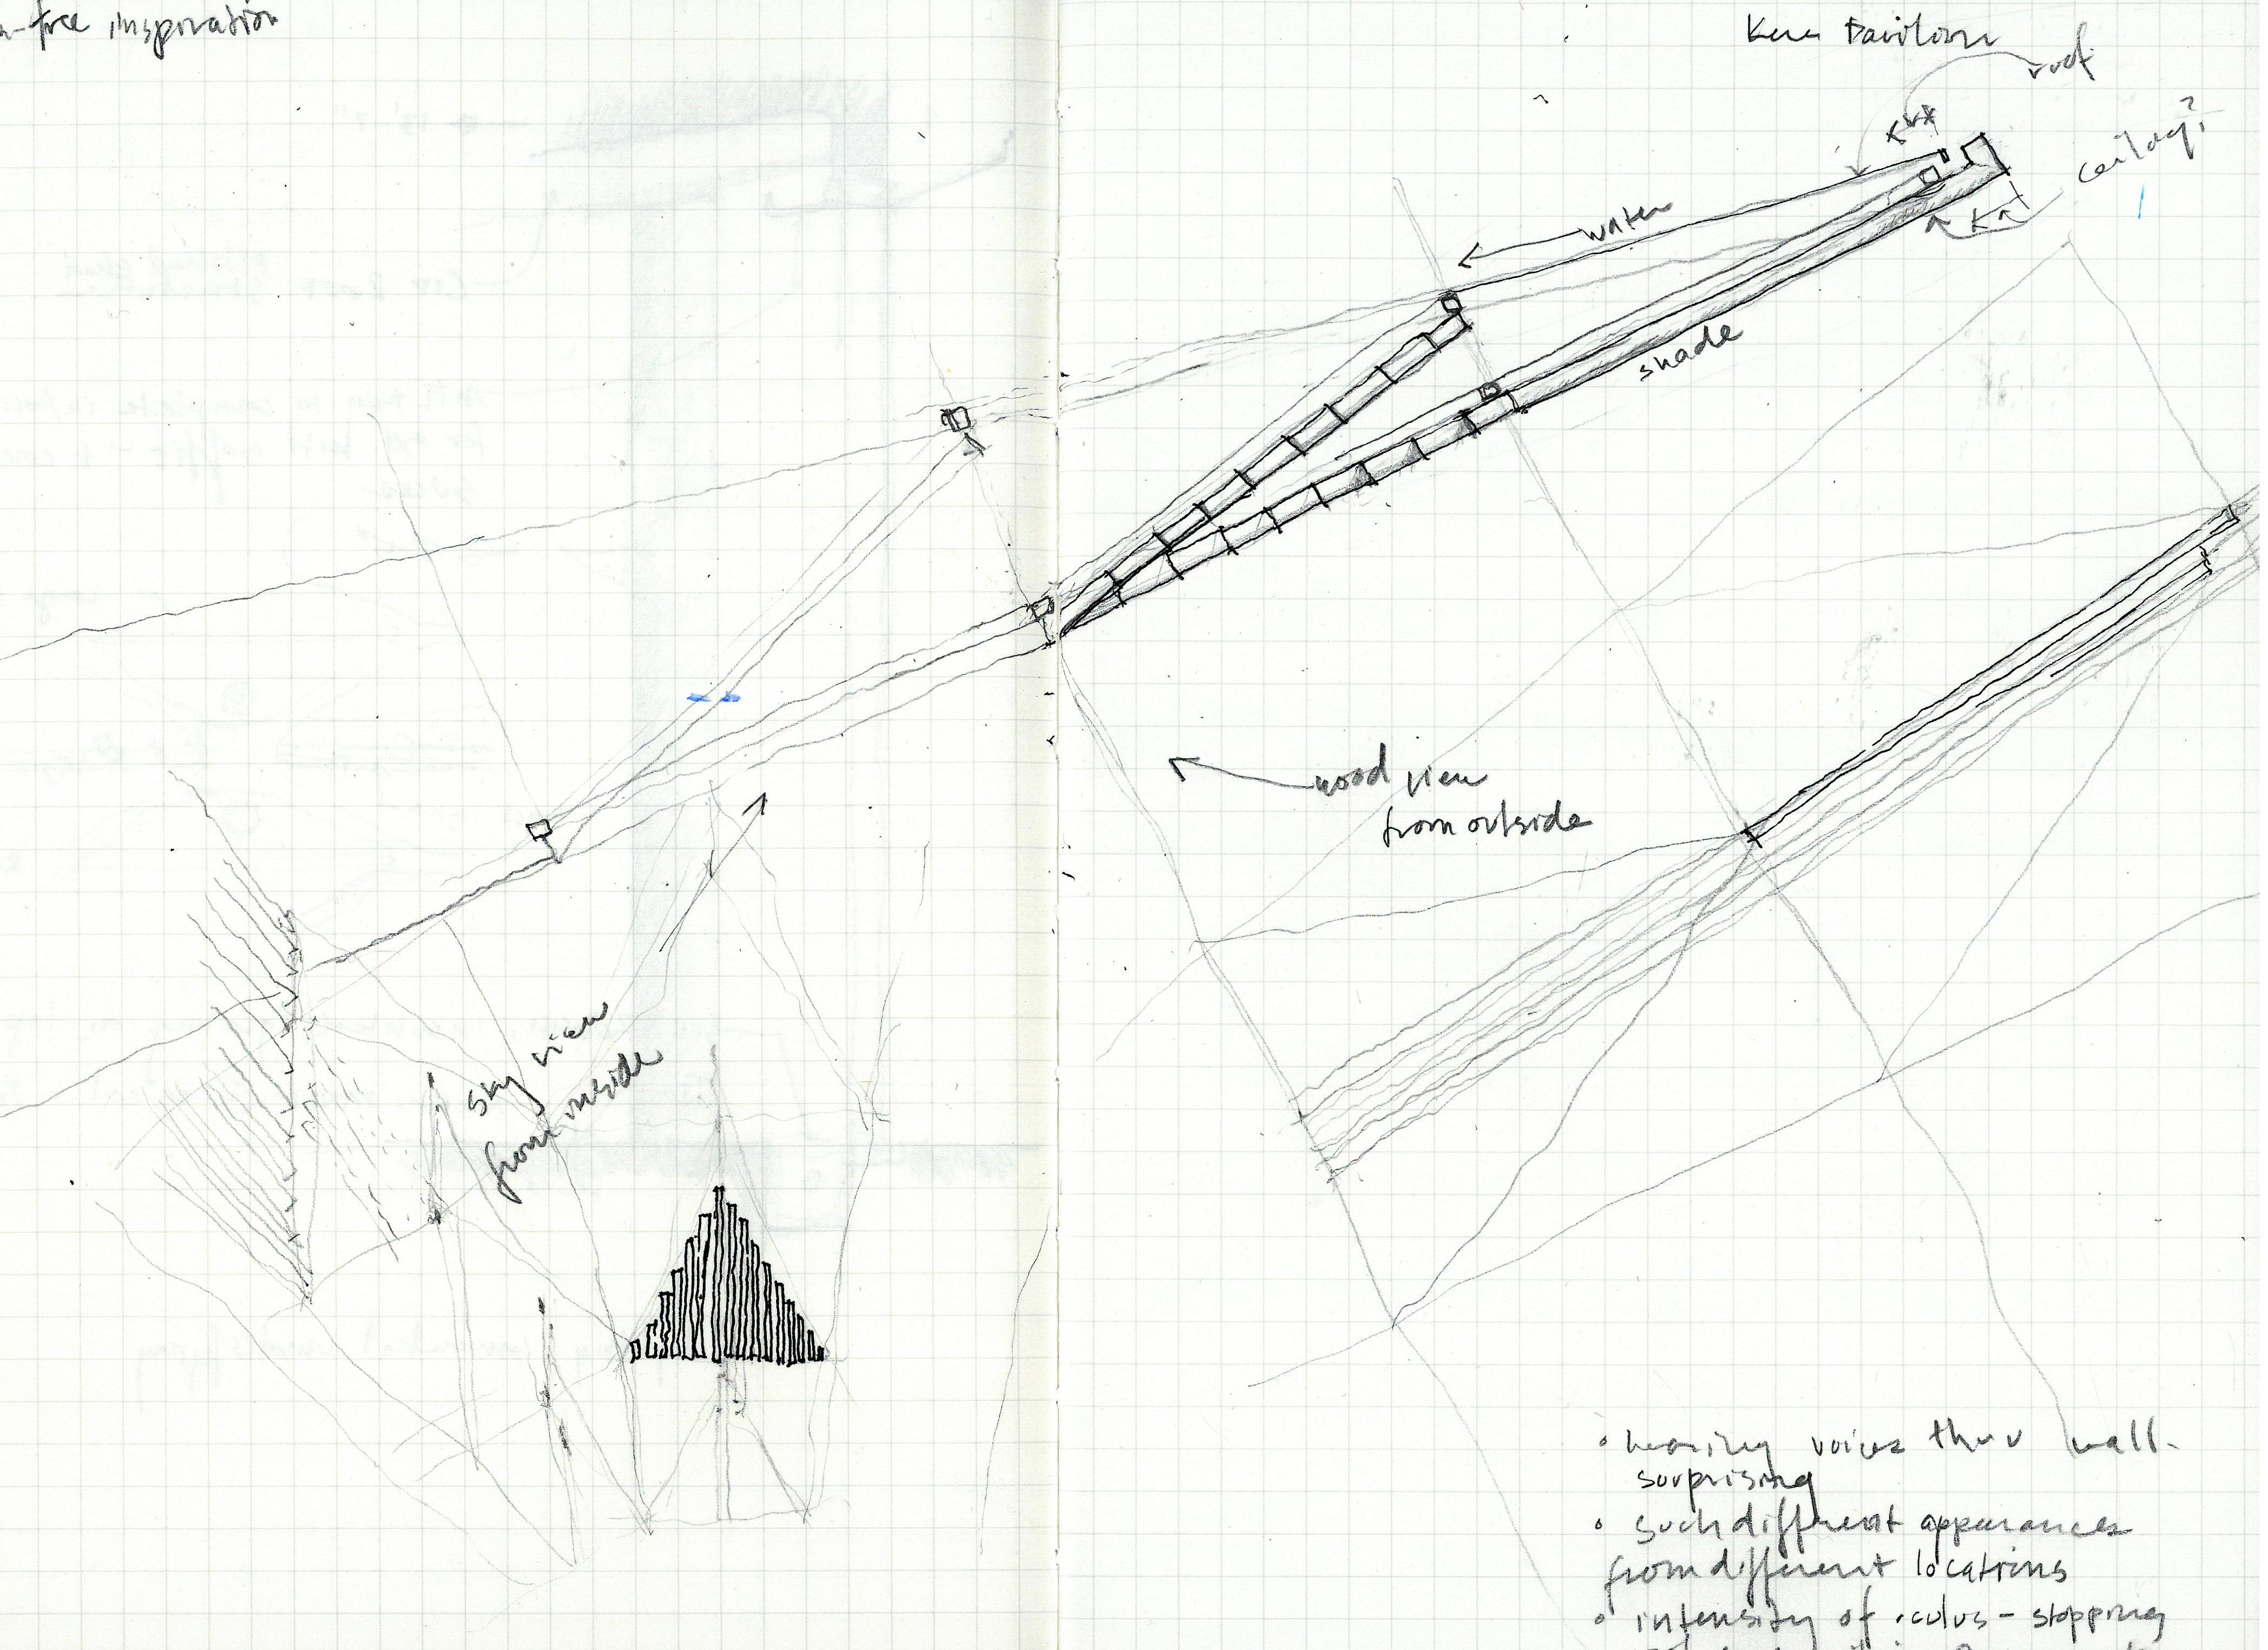 -free inspiration
Kere Pavilion
roof
ceiling?
water
shade
wood view
from outside
sky view
from inside
• hearing voices thru wall-
surprising
• such different appearances
from different locations
• intensity of oculus - stopping